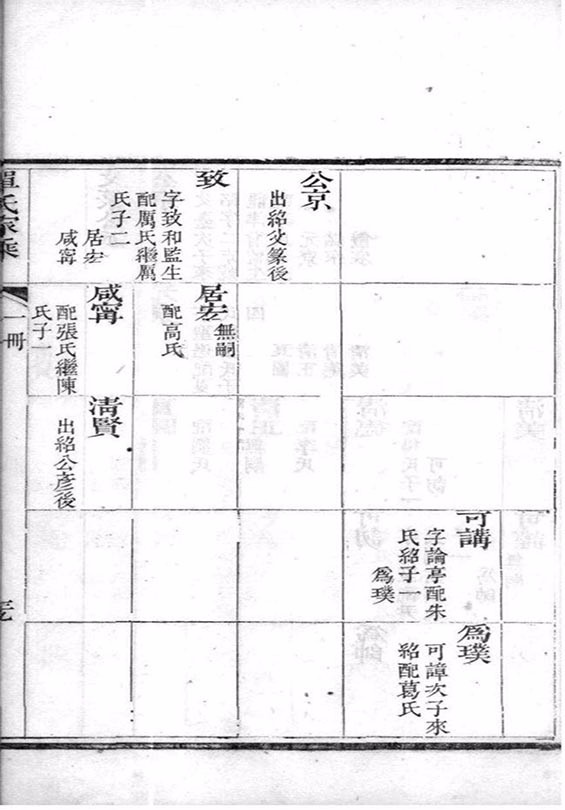 公京
出紹文篆後
致
字致和監生
配厲氏繼厲
氏子二
居宏
咸寗
居宏
無嗣
配高氏
咸寗
配張氏繼陳
氏子一
清賢
出紹公彥後
可講
字論亭配朱
氏紹子一
爲璞
爲璞
可諱次子來
紹配葛氏
單氏家乘
一冊